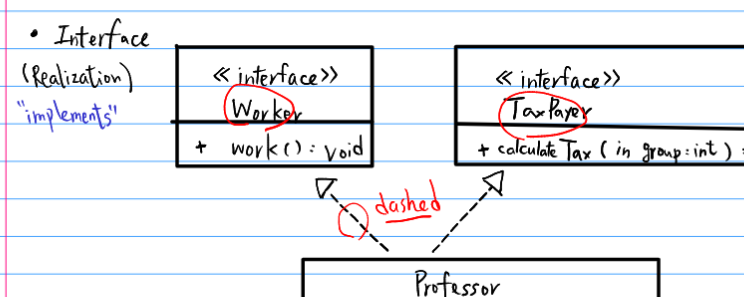 • Interface
(Realization)
"implements"
<< interface >>
Worker
+ work() : void
<< interface >>
TaxPayer
+ calculateTax ( in group : int ) :
dashed
Professor